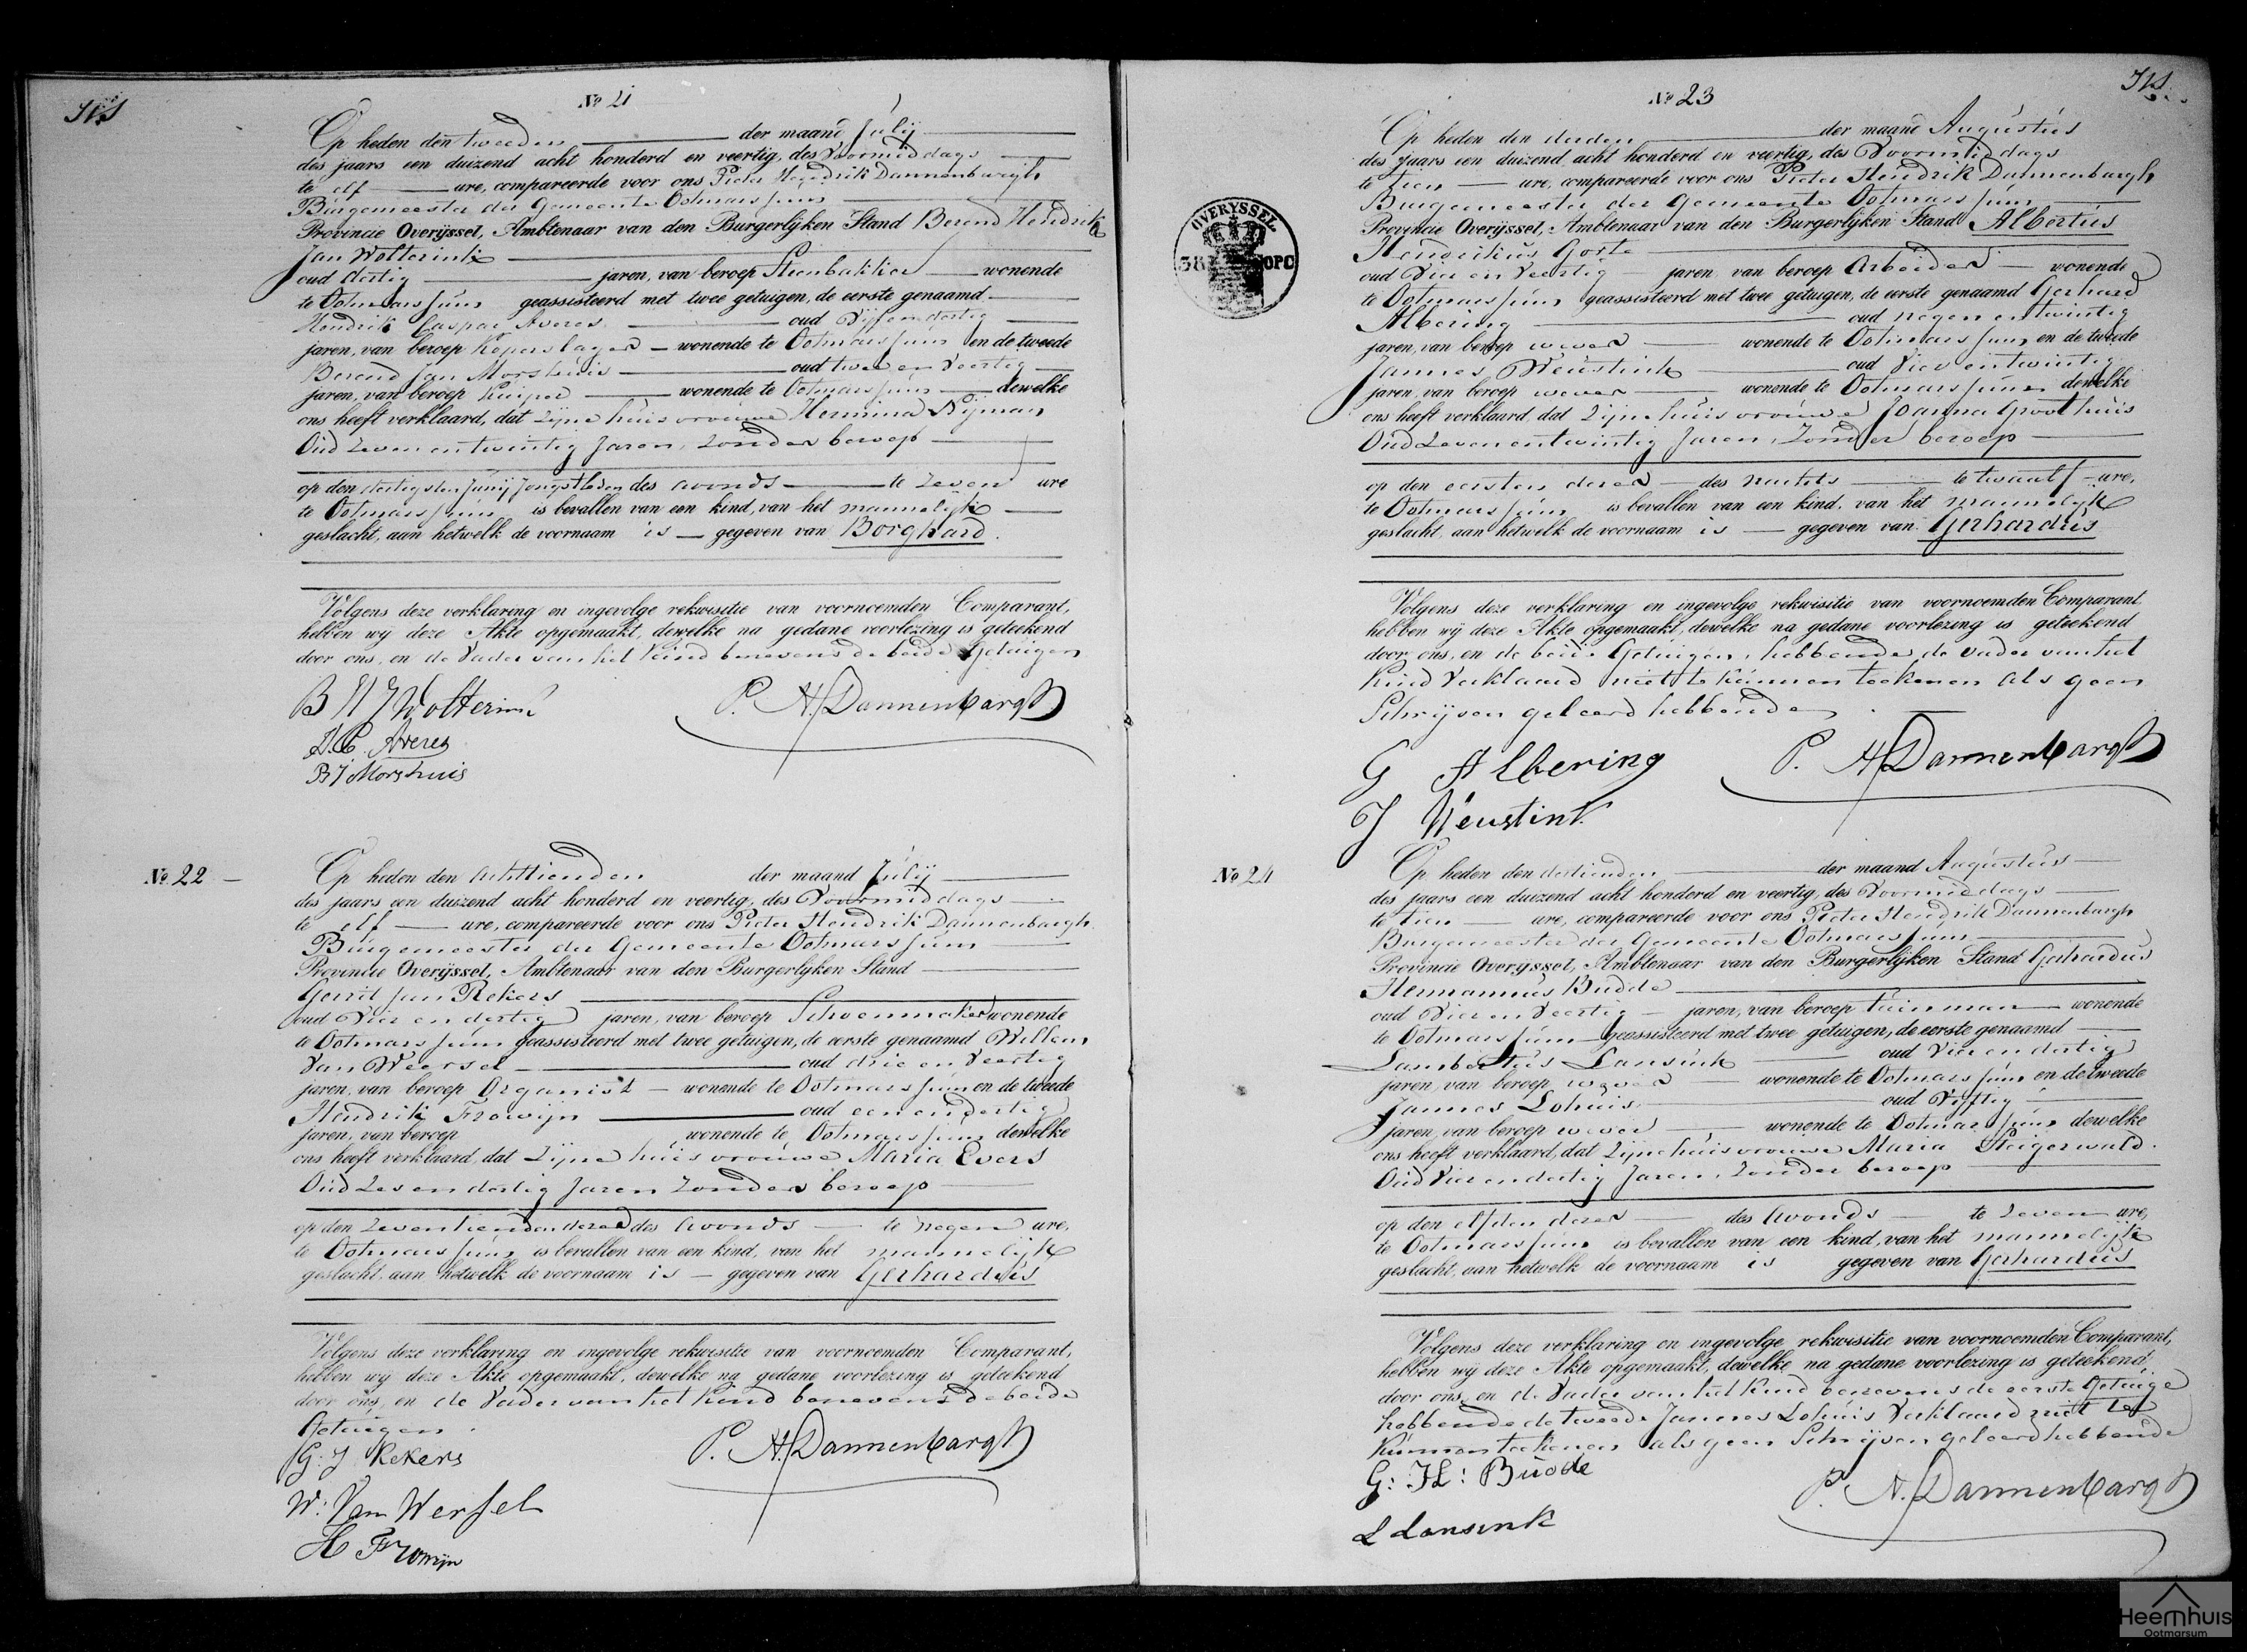 No 21
Op heden den tweeden der maand Julij
des jaars een duizend acht honderd en veertig, des Voormiddags
te elf ure, compareerde voor ons Pieter Hendrik Dannenbargh
Burgemeester der Gemeente Ootmarssum
Provincie Overijssel, Ambtenaar van den Burgerlijken Stand Berend Hendrik
Jan Wolterink
oud dertig jaren, van beroep Steenbakker wonende
te Ootmarssum geassisteerd met twee getuigen, de eerste genaamd
Hendrik Caspar Averes oud Vijfendertig
jaren, van beroep Koperslager wonende te Ootmarssum en de tweede
Berend Jan Morshuis oud twee en Veertig
jaren, van beroep Kuiper wonende te Ootmarssum dewelke
ons heeft verklaard, dat zijne huisvrouwe Hermina Nijman
Oud zeven entwintig Jaren, zonder beroep
op den dertigsten Junij Jongstleden des avonds te zeven ure
te Ootmarssum is bevallen van een kind, van het mannelijk
geslacht, aan hetwelk de voornaam is gegeven van Borghard.
Volgens deze verklaring en ingevolge rekwisitie van voornoemden Comparant,
hebben wij deze Akte opgemaakt, dewelke na gedane voorlezing is geteekend
door ons, en de Vader van het Kind benevens de beide Getuigen
B H J Wolterink P. H. Dannenbargh
H. C. Averes
B J Morshuis
No 22
Op heden den Achttienden der maand Julij
des jaars een duizend acht honderd en veertig, des Voormiddags
te elf ure, compareerde voor ons Pieter Hendrik Dannenbargh
Burgemeester der Gemeente Ootmarssum
Provincie Overijssel, Ambtenaar van den Burgerlijken Stand
Gerrit Jan Rekers
oud Vier en dertig jaren, van beroep Schoenmaker wonende
te Ootmarssum geassisteerd met twee getuigen, de eerste genaamd Willem
Van Weersel oud drie en Veertig
jaren, van beroep Organist wonende te Ootmarssum en de tweede
Hendrik Frowijn oud een en dertig
jaren, van beroep wonende te Ootmarssum dewelke
ons heeft verklaard, dat zijne huisvrouwe Maria Evers
Oud zes en dertig Jaren zonder beroep
op den zeventienden dezer des avonds te negen ure,
te Ootmarssum is bevallen van een kind, van het mannelijk
geslacht, aan hetwelk de voornaam is gegeven van Gerhardus
Volgens deze verklaring en ingevolge rekwisitie van voornoemden Comparant,
hebben wij deze Akte opgemaakt, dewelke na gedane voorlezing is geteekend
door ons, en de Vader van het Kind benevens de beide
Getuigen.
G: J Rekers P. H. Dannenbargh
W: Van Wersel
H Frowijn
No 23
Op heden den derden der maand Augustus
des jaars een duizend acht honderd en veertig, des Voormiddags
te tien ure, compareerde voor ons Pieter Hendrik Dannenbargh
Burgemeester der Gemeente Ootmarssum
OVERYSSEL
Provincie Overijssel, Ambtenaar van den Burgerlijken Stand Albertus
Hendrikus Goote
oud Vier en Veertig jaren van beroep Arbeider wonende
te Ootmarssum geassisteerd met twee getuigen, de eerste genaamd Gerhard
Albering oud negen entwintig
jaren, van beroep wever wonende te Ootmarssum en de tweede
Jannes Weustink oud Vier entwintig
jaren, van beroep wever wonende te Ootmarssum dewelke
ons heeft verklaard, dat zijne huisvrouwe Joanna Groothuis
Oud zeven entwintig Jaren, zonder beroep
op den eersten dezer des nachts te twaalf ure,
te Ootmarssum is bevallen van een kind, van het mannelijk
geslacht, aan hetwelk de voornaam is gegeven van Gerhardus
Volgens deze verklaring en ingevolge rekwisitie van voornoemden Comparant,
hebben wij deze Akte opgemaakt, dewelke na gedane voorlezing is geteekend
door ons, en de beide Getuigen, hebbende de vader van het
Kind Verklaard niet te kunnen teekenen als geen
Schrijven geleerd hebbende.
G Albering P. H. Dannenbargh
J Weustink
No 24
Op heden den dertienden der maand Augustus
des jaars een duizend acht honderd en veertig, des Voormiddags
te tien ure, compareerde voor ons Pieter Hendrik Dannenbargh
Burgemeester der Gemeente Ootmarssum
Provincie Overijssel, Ambtenaar van den Burgerlijken Stand Gerhardus
Hermannus Budde
oud Vier en Veertig jaren, van beroep tuinman wonende
te Ootmarssum geassisteerd met twee getuigen, de eerste genaamd
Lambertus Lansink oud Vier en dertig
jaren, van beroep wever wonende te Ootmarssum en de tweede
Jannes Lohuis oud Vijftig
jaren, van beroep wever wonende te Ootmarssum dewelke
ons heeft verklaard, dat zijne huisvrouwe Maria Steigerwald
Oud Vier en dertig Jaren, zonder beroep
op den elfden dezer des avonds te zeven ure,
te Ootmarssum is bevallen van een kind, van het mannelijk
geslacht, aan hetwelk de voornaam is gegeven van Gerhardus
Volgens deze verklaring en ingevolge rekwisitie van voornoemden Comparant,
hebben wij deze Akte opgemaakt, dewelke na gedane voorlezing is geteekend
door ons, en de Vader van het Kind benevens de eerste Getuige
hebbende de tweede Jannes Lohuis Verklaard niet te
Kunnen teekenen als geen Schrijven geleerd hebbende
G: H: Budde P. H. Dannenbargh
L Lansink
Heemhuis
Ootmarsum